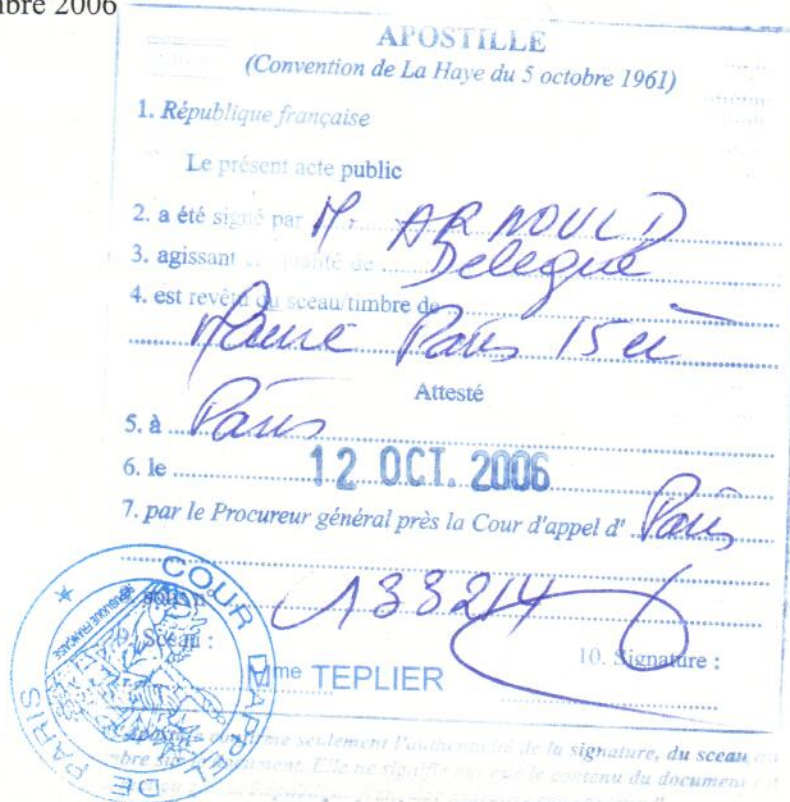 mbre 2006
APOSTILLE
(Convention de La Haye du 5 octobre 1961)
1. République française
Le présent acte public
2. a été signé par M. ARNOULD
3. agissant en qualité de Délégué
4. est revêtu du sceau/timbre de
Mairie Paris 15e
Attesté
5. à Paris
6. le 12 OCT. 2006
7. par le Procureur général près la Cour d'appel d' Paris
8. sous n° 133214
9. Sceau :
10. Signature :
Mme TEPLIER
COUR D'APPEL DE PARIS
REPUBLIQUE FRANÇAISE
apostille confirme seulement l'authenticité de la signature, du sceau ou
mbre sur le document. Elle ne signifie pas que le contenu du document est